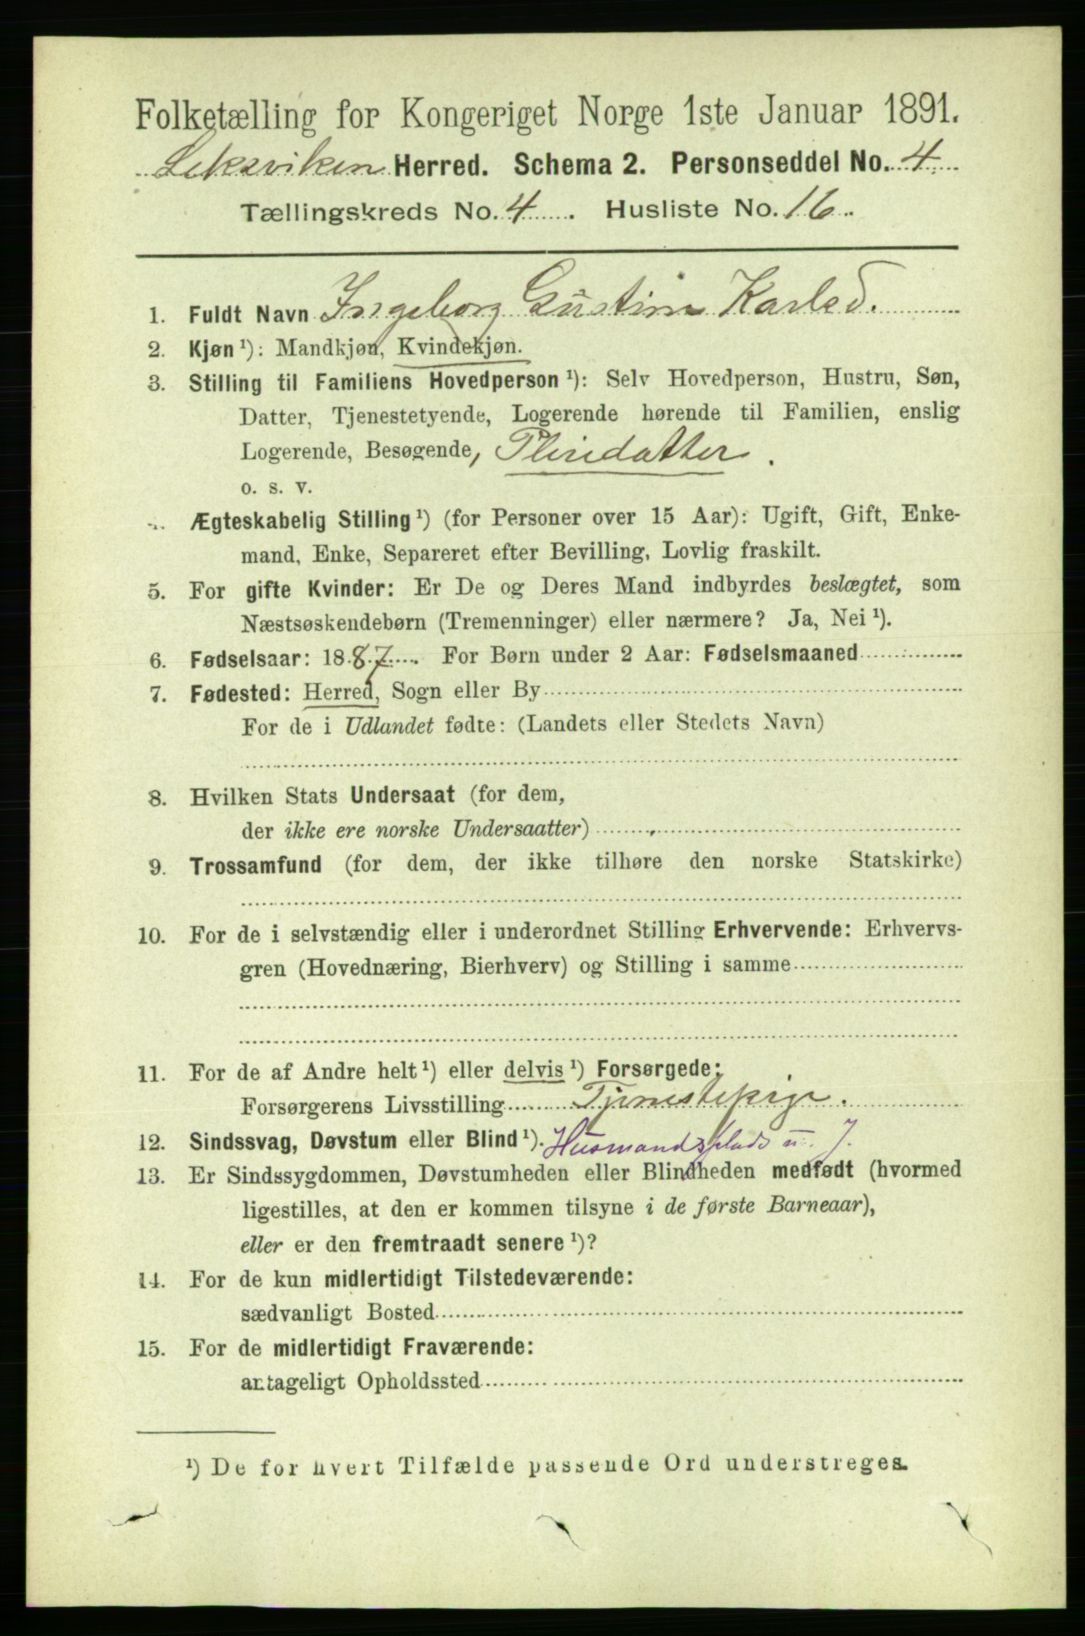 Folketælling for Kongeriget Norge 1ste Januar 1891.
Leksviken Herred. Schema 2. Personseddel No. 4.
Tællingskreds No. 4. Husliste No. 16.
1. Fuldt Navn Ingeborg Gustine Karlsd.
2. Kjøn ¹): Mandkjøn, Kvindekjøn.
3. Stilling til Familiens Hovedperson ¹): Selv Hovedperson, Hustru, Søn,
Datter, Tjenestetyende, Logerende hørende til Familien, enslig
Logerende, Besøgende, Pleiedatter.
o. s. v.
Ægteskabelig Stilling ¹) (for Personer over 15 Aar): Ugift, Gift, Enke-
mand, Enke, Separeret efter Bevilling, Lovlig fraskilt.
5. For gifte Kvinder: Er De og Deres Mand indbyrdes beslægtet, som
Næstsøskendebørn (Tremenninger) eller nærmere? Ja, Nei ¹).
6. Fødselsaar: 1887. For Børn under 2 Aar: Fødselsmaaned
7. Fødested: Herred, Sogn eller By
For de i Udlandet fødte: (Landets eller Stedets Navn)
8. Hvilken Stats Undersaat (for dem,
der ikke ere norske Undersaatter)
9. Trossamfund (for dem, der ikke tilhøre den norske Statskirke)
10. For de i selvstændig eller i underordnet Stilling Erhvervende: Erhvervs-
gren (Hovednæring, Bierhverv) og Stilling i samme
11. For de af Andre helt ¹) eller delvis ¹) Forsørgede:
Forsørgerens Livsstilling Tjenestepige.
12. Sindssvag, Døvstum eller Blind ¹). Husmandsplads u. J.
13. Er Sindssygdommen, Døvstumheden eller Blindheden medfødt (hvormed
ligestilles, at den er kommen tilsyne i de første Barneaar),
eller er den fremtraadt senere ¹)?
14. For de kun midlertidigt Tilstedeværende:
sædvanligt Bosted
15. For de midlertidigt Fraværende:
antageligt Opholdssted
¹) De for hvert Tilfælde passende Ord understreges.